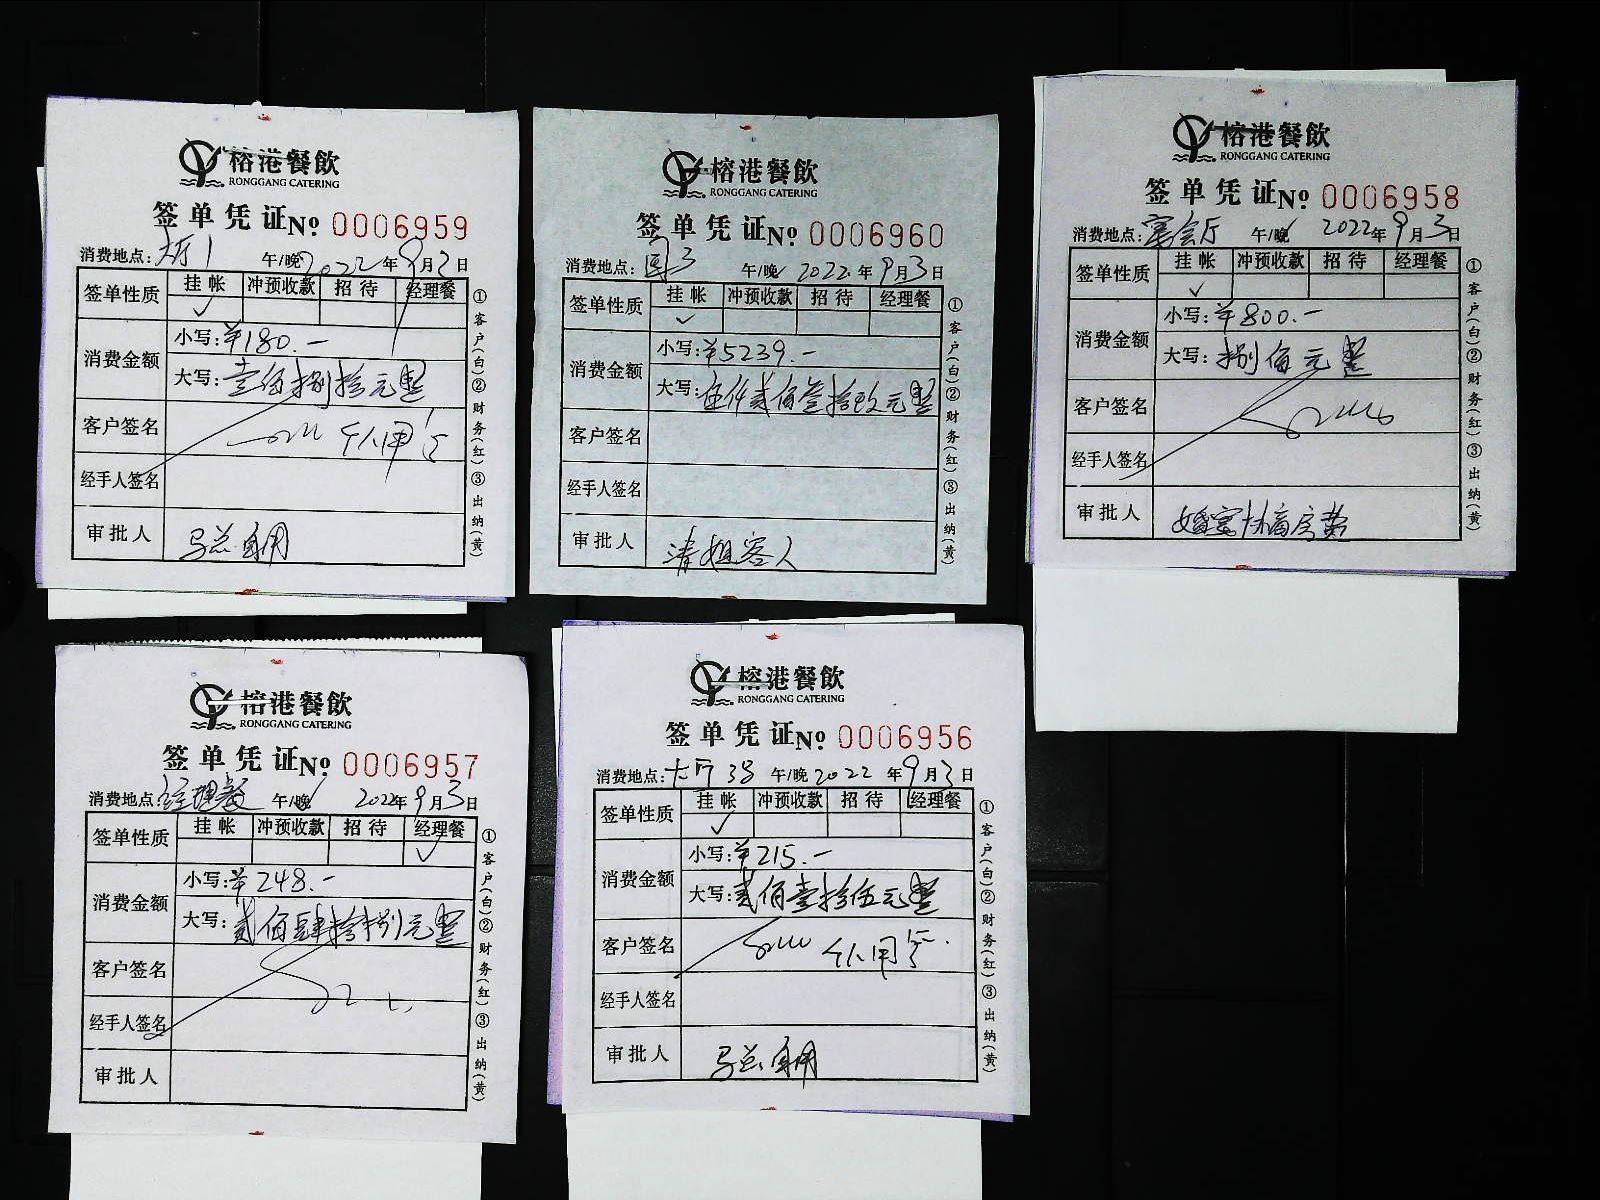 榕港餐飲
RONGGANG CATERING
签单凭证No 0006959
消费地点:大厅1 午/晚 2022年9月3日
签单性质 挂帐 冲预收款 招待 经理餐
✓
消费金额
小写:¥180.-
大写:壹佰捌拾元整
客户签名 个人用
经手人签名
审批人 马总自用
①客户(白)②财务(红)③出纳(黄)
榕港餐飲
RONGGANG CATERING
签单凭证No 0006960
消费地点: 午/晚 2022.年9月3日
签单性质 挂帐 冲预收款 招待 经理餐
✓
消费金额
小写:¥5239.-
大写:伍仟贰佰叁拾玖元整
客户签名
经手人签名
审批人 清姐客人
①客户(白)②财务(红)③出纳(黄)
榕港餐飲
RONGGANG CATERING
签单凭证No 0006958
消费地点:宴会厅 午/晚 2022年9月3日
签单性质 挂帐 冲预收款 招待 经理餐
✓
消费金额
小写:¥800.-
大写:捌佰元整
客户签名
经手人签名
审批人 婚宴
①客户(白)②财务(红)③出纳(黄)
榕港餐飲
RONGGANG CATERING
签单凭证No 0006957
消费地点:经理餐 午/晚 2022年9月3日
签单性质 挂帐 冲预收款 招待 经理餐
✓
消费金额
小写:¥248.-
大写:贰佰肆拾捌元整
客户签名
经手人签名
审批人
①客户(白)②财务(红)③出纳(黄)
榕港餐飲
RONGGANG CATERING
签单凭证No 0006956
消费地点:大厅38 午/晚 2022年9月3日
签单性质 挂帐 冲预收款 招待 经理餐
✓
消费金额
小写:¥215.-
大写:贰佰壹拾伍元整
客户签名 个人用
经手人签名
审批人 马总自用
①客户(白)②财务(红)③出纳(黄)